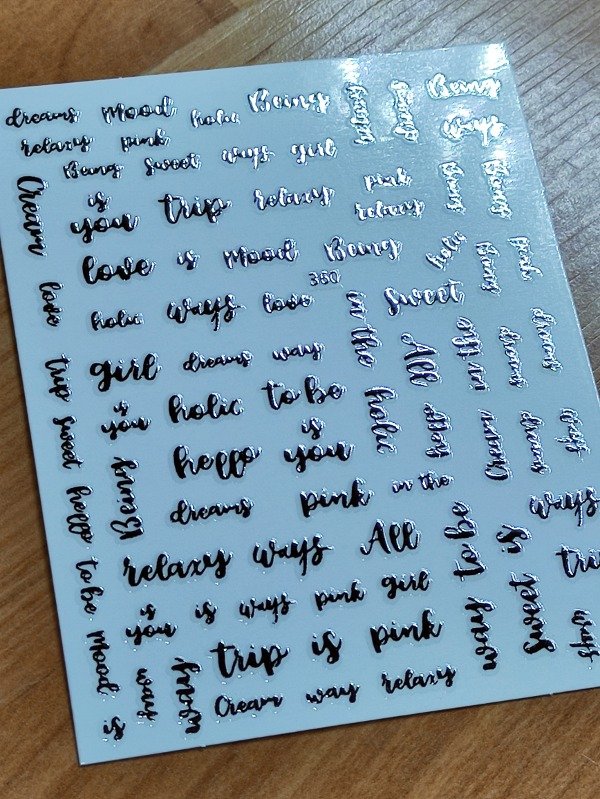 dreams mood holic Being relaxy Being Being
relaxy pink ways
Being sweet ways girl
Cream is you trip relaxy pink relaxy Being Being
love is mood Being holic Being pink
love holic ways love 350 sweet
in the All in the dreams dreams
trip girl dreams way
is you holic to be holic hello Cream dreams
sweet hello is you
Being dreams pink in the
hello relaxy ways All way to be sweet is ways
to be is you is ways pink girl trip
mood is way trip is pink
Cream way relaxy